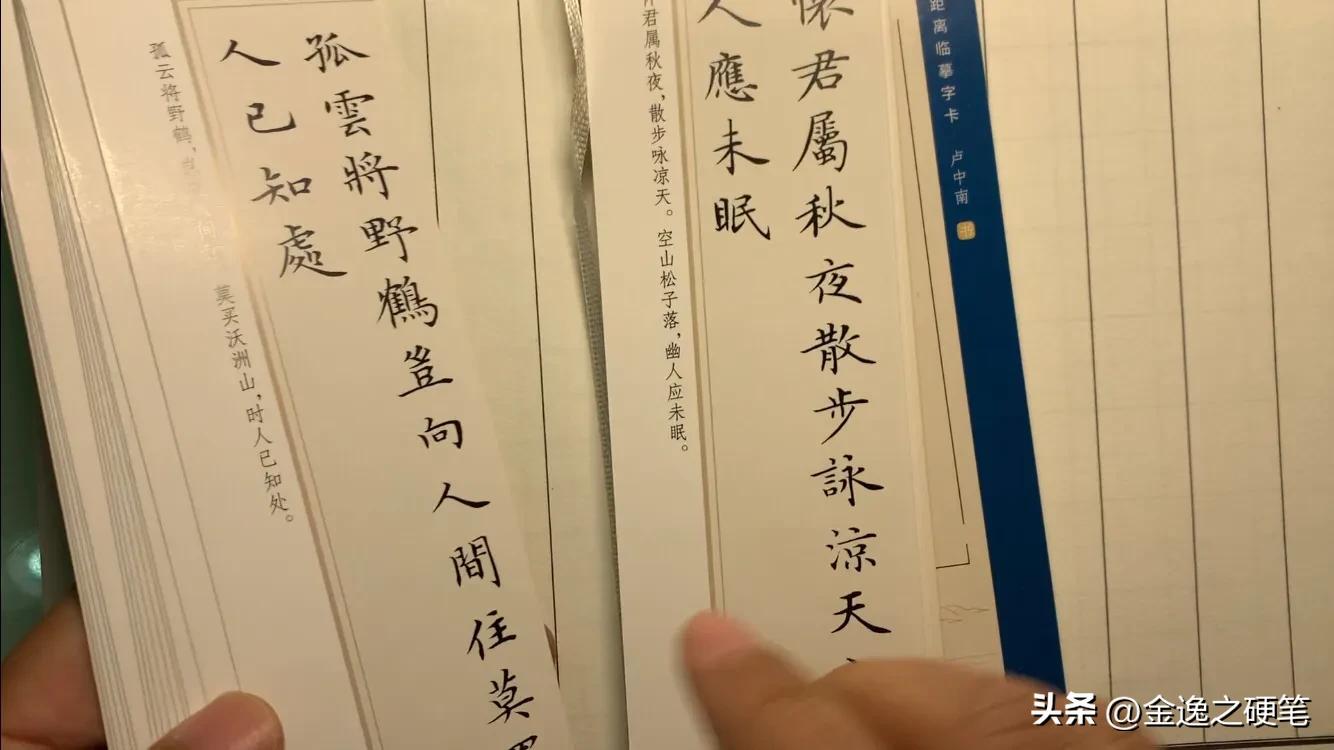 距离临摹字卡 卢中南 书
懷君屬秋夜散步詠涼天
人應未眠
君属秋夜，散步咏凉天。空山松子落，幽人应未眠。
孤雲將野鶴豈向人間住莫
人已知處
孤云将野鹤，
莫买沃洲山，时人已知处。
头条 @金逸之硬笔